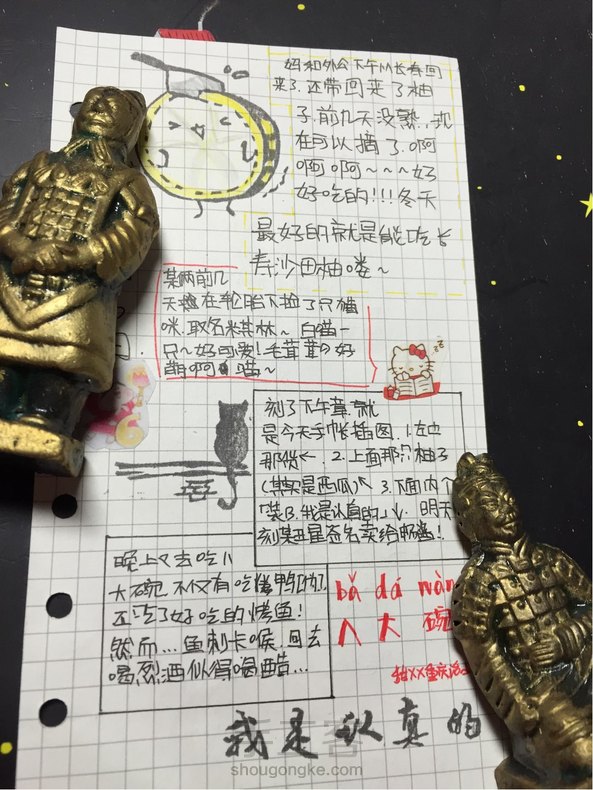 妈和外公下午从长寿回
来了.还带回来了柚
子.前几天没熟..现
在可以摘了.啊
啊啊啊~~~好
好吃的!!!冬天
最好的就是能吃长
寿沙田柚喽~
某两前几
天趣在轮胎下捡了只猫
咪.取名米其林~ 白猫一
只~好可爱!毛茸茸の好
萌啊 喵~
刻了下午章.就
是今天手帐插图.1.左中
那份← 2.上面那只柚子
(其实是西瓜)↖ 3.下面内个
我是认真的↓. 明天
晚上又去吃八
大碗.不仅有吃
还吃了好吃的烤鱼!
然而...鱼刺卡喉.回去
喝烈酒似得喝醋...
bā dá wàn
八大碗
我是认真的
shougongke.com